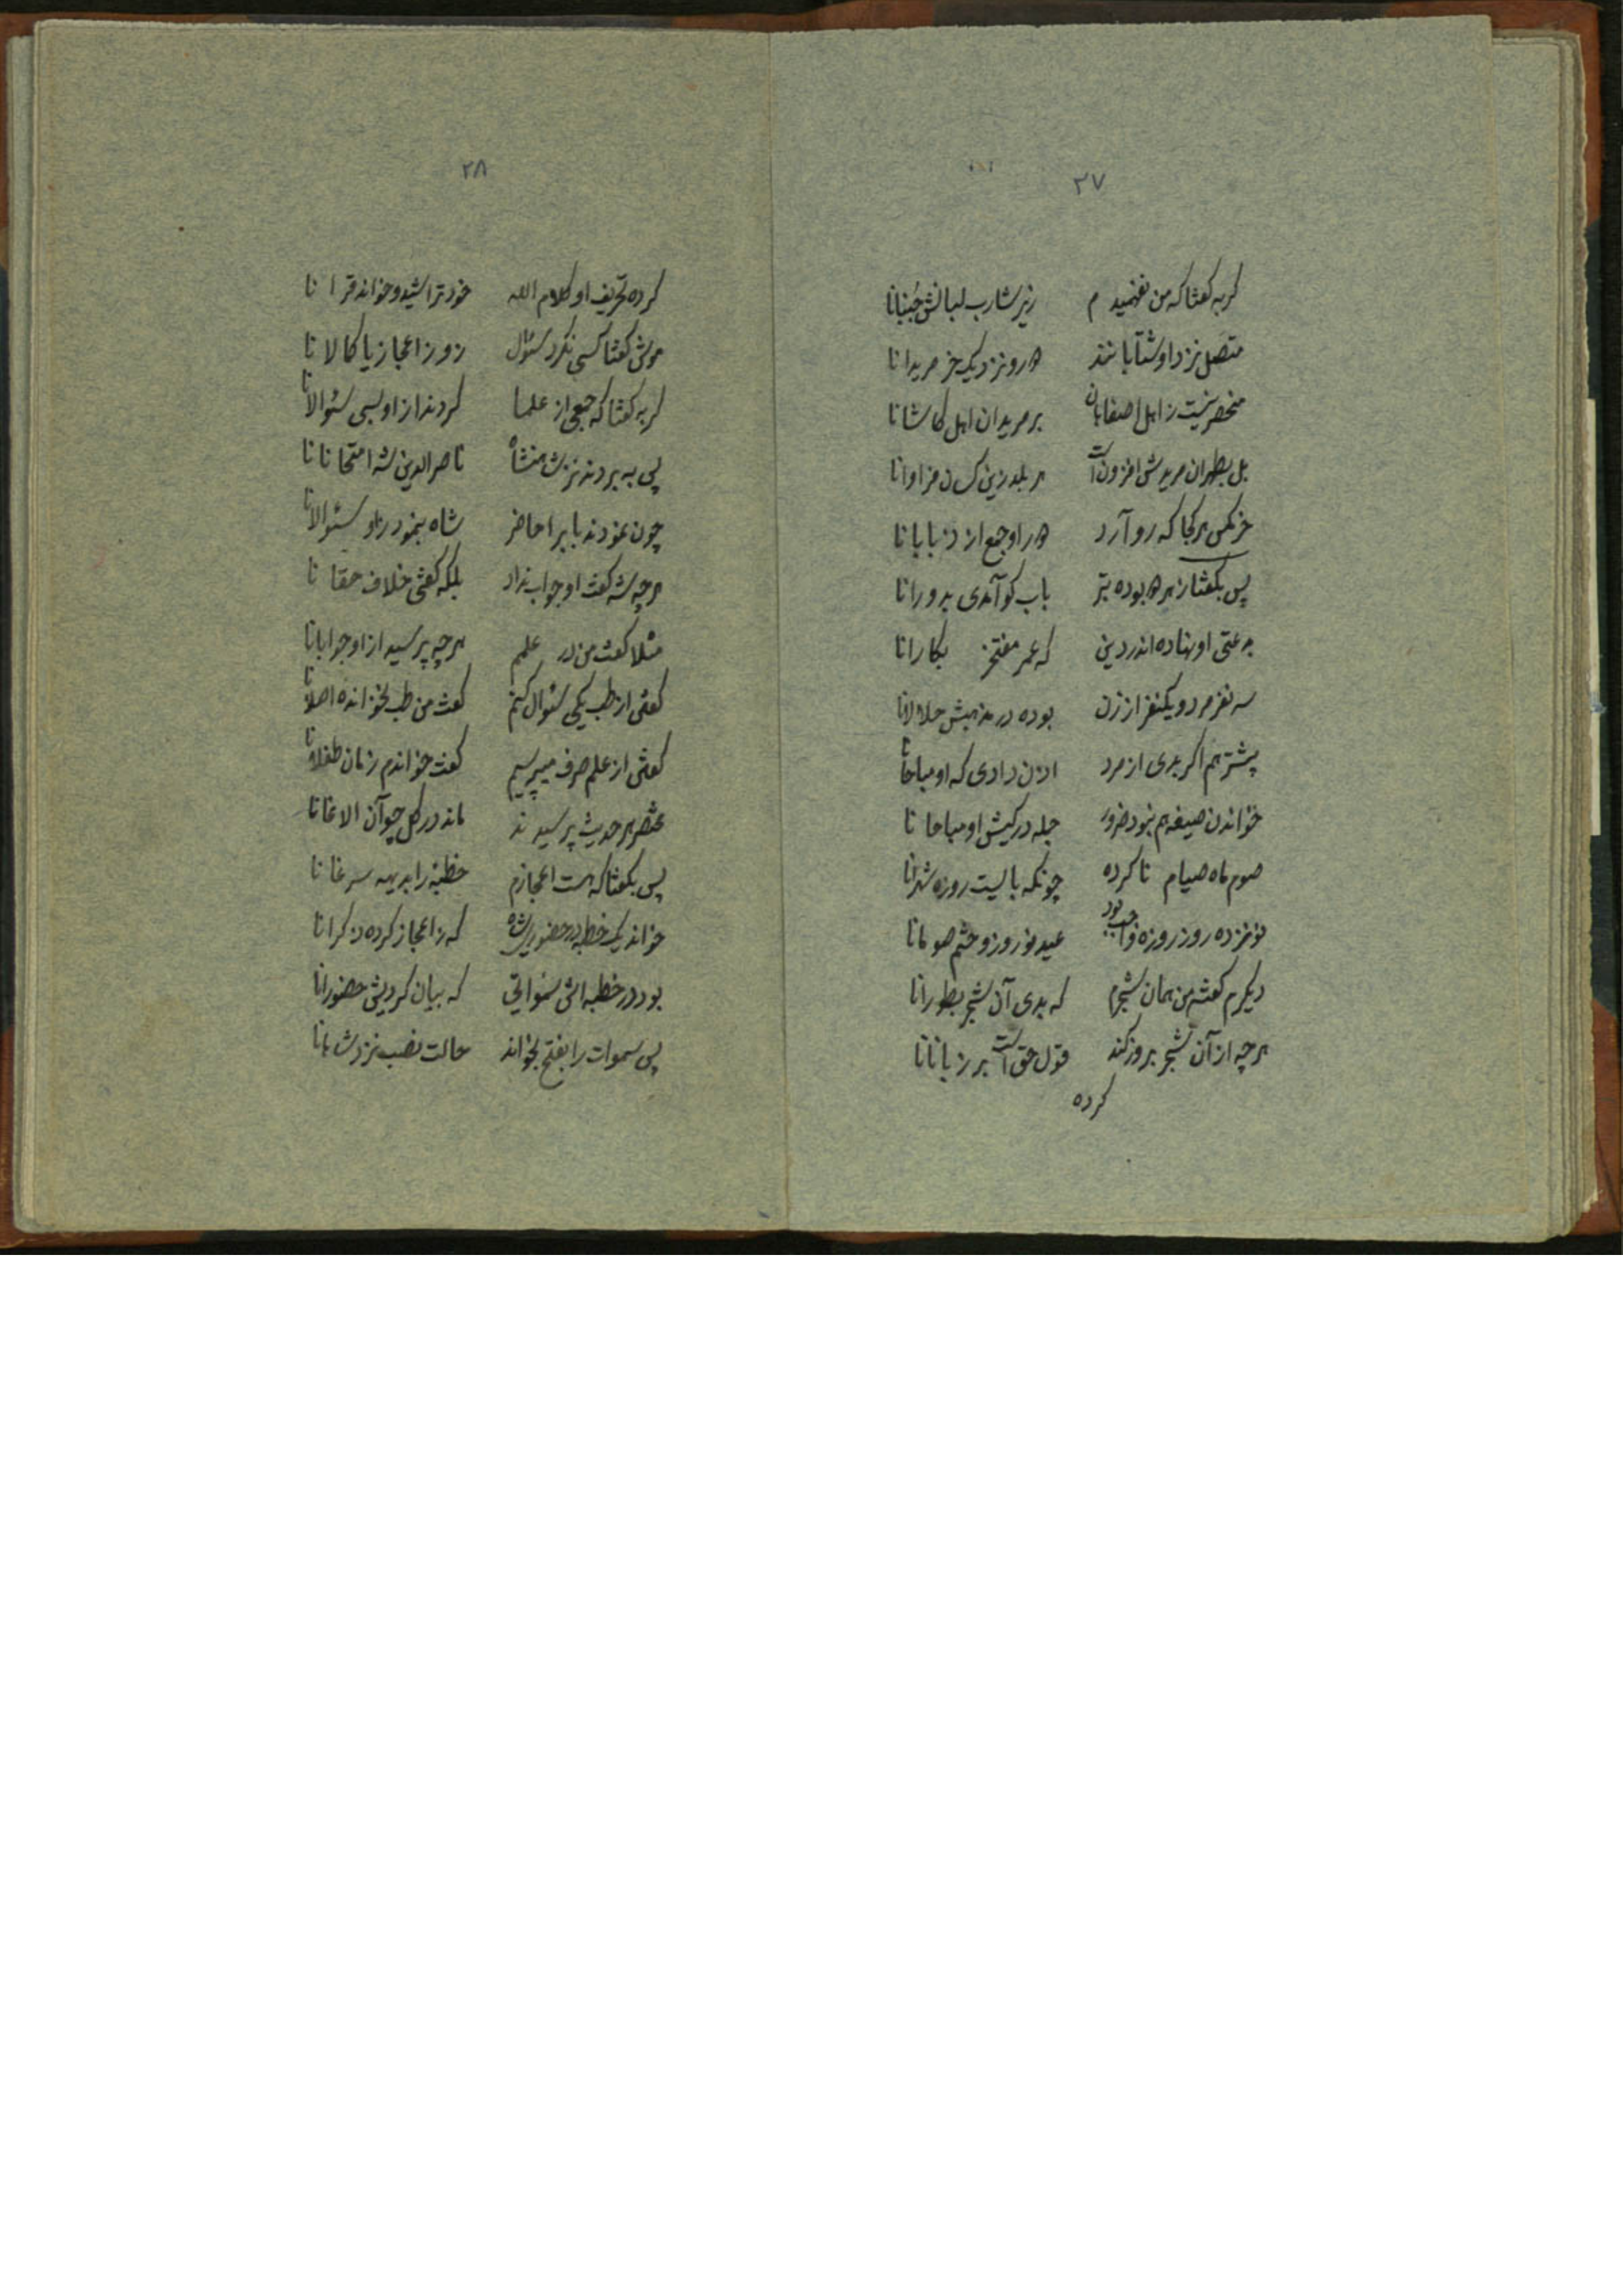 ۲۷
گربه گفتا که من نفهمیدم زیر شارب لبانش جنبانا
متصل نزد او شتابانند هر دو نزدیک خر مریدانا
منحصر نیست ز اهل اصفاهان بر مریدان اهل کاشانا
بل بطهران مریدش افزون است هر بلد زین کسان فراوانا
خر مگس هر کجا که رو آرد جمع از
پس بگفتا ز هر بوده بتر باب کو آمدی بدورانا
بدعتی او نهاده اندر دین که عمر مفتخر بکارانا
سه نفر مرد و یکنفر از زن بوده در مذهبش حلالانا
پشتر هم اگر بدی از مرد اذن دادی که او مباحانا
خواندن صیغه هم نبود ضرور جمله در کیش او مباحانا
صوم ماه صیام تا کرده چونکه بایست روزه شهرانا
نونزده روز روزه واجب بود عید نوروز و ختم صومانا
دیگرم گفته من همان شجرم که بدی آن شجر بطورانا
هر چه از آن شجر بروز کند قول حق است بر زبانانا
کرده
۲۸
کرده تحریف او کلام الله خود تراشید و خواند قرانا
موش گفتا کسی نکرد سئوال زو ز اعجاز یا کمالانا
گربه گفتا که جمعی از علما کردند از او بسی سئوالانا
پی به بردند نزد شاهنشاه ناصرالدین شه امتحانانا
چون نمودند باب را حاضر شاه بنمود زو سئوالانا
هرچه شه گفت او جواب نداد بلکه گفتی خلاف حقانا
مثلا گفت من در علمم هرچه پرسید از او جوابانا
گفتی از طب یکی سئوال کنم گفت من طب نخوانده اصلانا
گفتی از علم صرف میپرسیم گفت خواندم زمان طفلانا
مختصر هر حدیث پرسیدند ماند در گل چو آن الاغانا
پس بگفتا که هست اعجازم خطبه را بدیهه سرغانا
خواند یک خطبه در حضور شاه که ز اعجاز کرده ذکرانا
بود در خطبه اش سمواتی که بیان کردیش حضورانا
پس سموات را بفتح بخواند حالت نصب نزد شاهانا